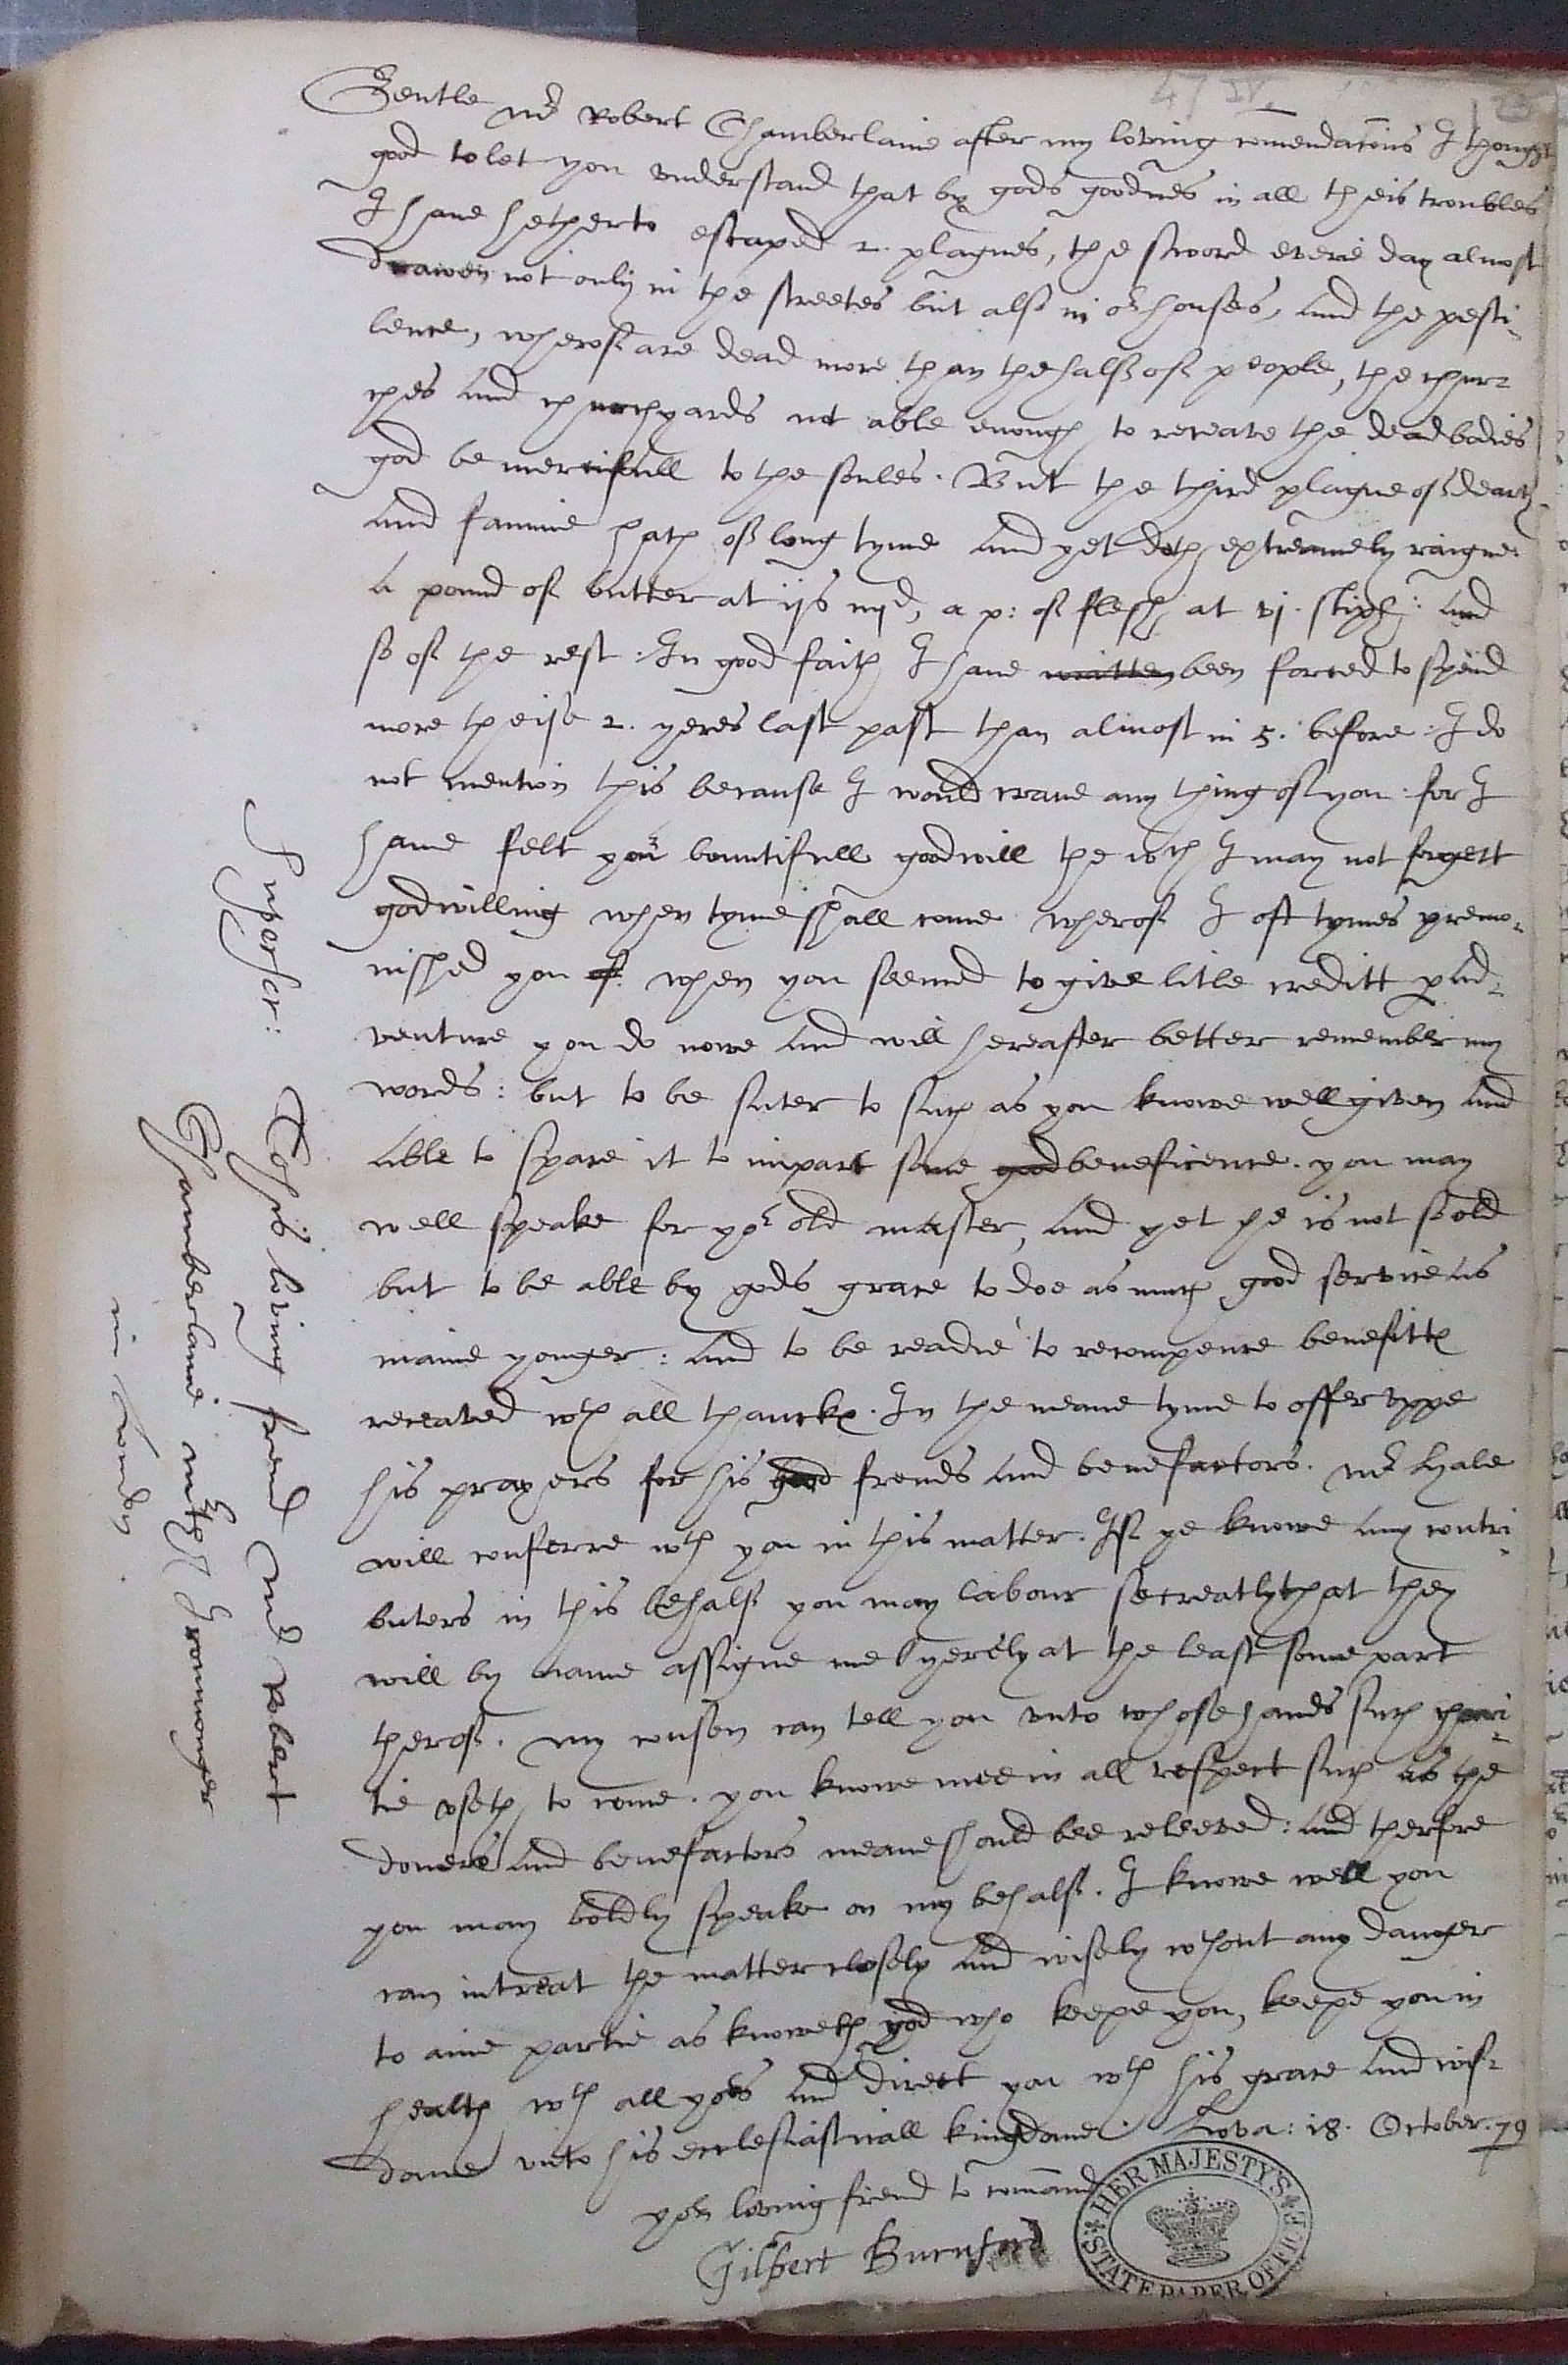 Gentle Mr Robert Chamberlaine after my loving comendacons I thought
good to let you understand that by gods goodnes in all theis troubles
I have hetherto escaped 2. plagues, the sword everie day almost
drawen not only in the streetes but also in or houses, and the pesti-
lence, wherof are dead more than the halfe of people, the chur-
ches and churchyards not able enough to receave the dead bodies
god be mercifull to the soules. But the third plague of dearth
and famine hath of long tyme and yet doth extreamely raigne.
a pound of butter at ijs iiijd, a p: of flesh at vj. stiph: and
so of the rest: In good faith I have written been forced to spend
more theise 2. yeres last past than almost in 5. before: I do
not mention this because I would crave any thing of you: for I
have felt your bountifull goodwill the wch I may not forgett
god willing when tyme shall come wherof I oft tymes premo-
nished you of. when you seemed to give litle creditt pad-
venture you do nowe and will hereafter better remember my
words: but to be suter to such as you knowe well given and
able to spare it to impart some good beneficence. you may
well speake for yor old master, and yet he is not so old
but to be able by gods grace to doe as much good service as
manie yonger: and to be readie to recompence benefitts
receaved wth all thanckes. In the meane tyme to offer uppe
his prayers for his good frends and benefactors. Mr Hale
will conferre wth you in this matter. If ye knowe any contri-
buters in this behalf you may labour secreatly that they
will by name assigne me yerely at the least some part
therof. my cousen can tell you unto whose hands such chari-
tie useth to come. you knowe mee in all respect such as the
doners and benefactors meane should bee releeved: and therfore
you may boldly speake on my behalf. I knowe well you
can intreat the matter closely and wisely wthout any danger
to anie partie as knoweth god who keepe you, keepe you in
health wth all yors and direct you wth his grace and wis-
dome unto his ecclesiasticall kingdome. Lova: 18. October. 79
yor loving friend to comand
Gilbert Burnford
Superscr:
To his loving frend Mr Robert
Chamberlaine Ironmonger
in London
HER MAJESTY'S
STATE PAPER OFFICE